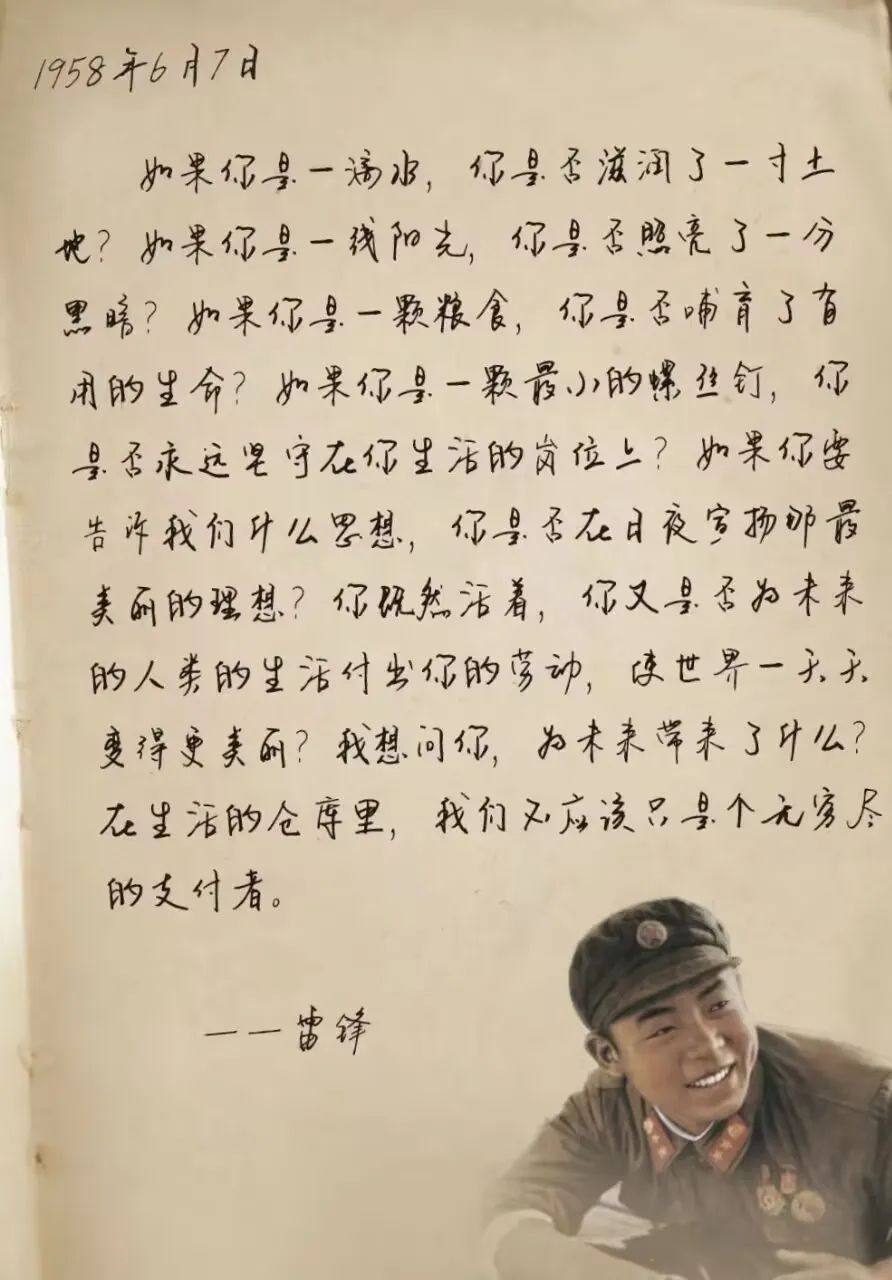 1958年6月7日
如果你是一滴水，你是否滋润了一寸土
地？如果你是一线阳光，你是否照亮了一分
黑暗？如果你是一颗粮食，你是否哺育了有
用的生命？如果你是一颗最小的螺丝钉，你
是否永远坚守在你生活的岗位上？如果你要
告诉我们什么思想，你是否在日夜宣扬那最
美丽的理想？你既然活着，你又是否为未来
的人类的生活付出你的劳动，使世界一天天
变得更美丽？我想问你，为未来带来了什么？
在生活的仓库里，我们不应该只是个无穷尽
的支付者。
——雷锋